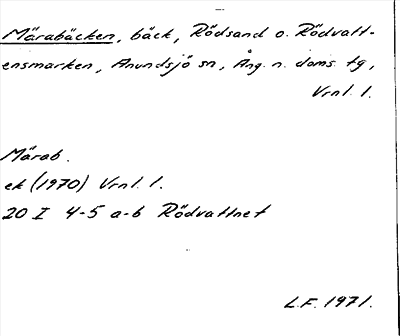 Märabäcken, bäck, Rödsand o. Rödvatt-
ensmarken, Anundsjö sn, Ång. n. doms. tg,
Vrnl. l.
Märab.
ek (1970) Vrnl. l.
20 I 4-5 a-b Rödvattnet
L.F. 1971.